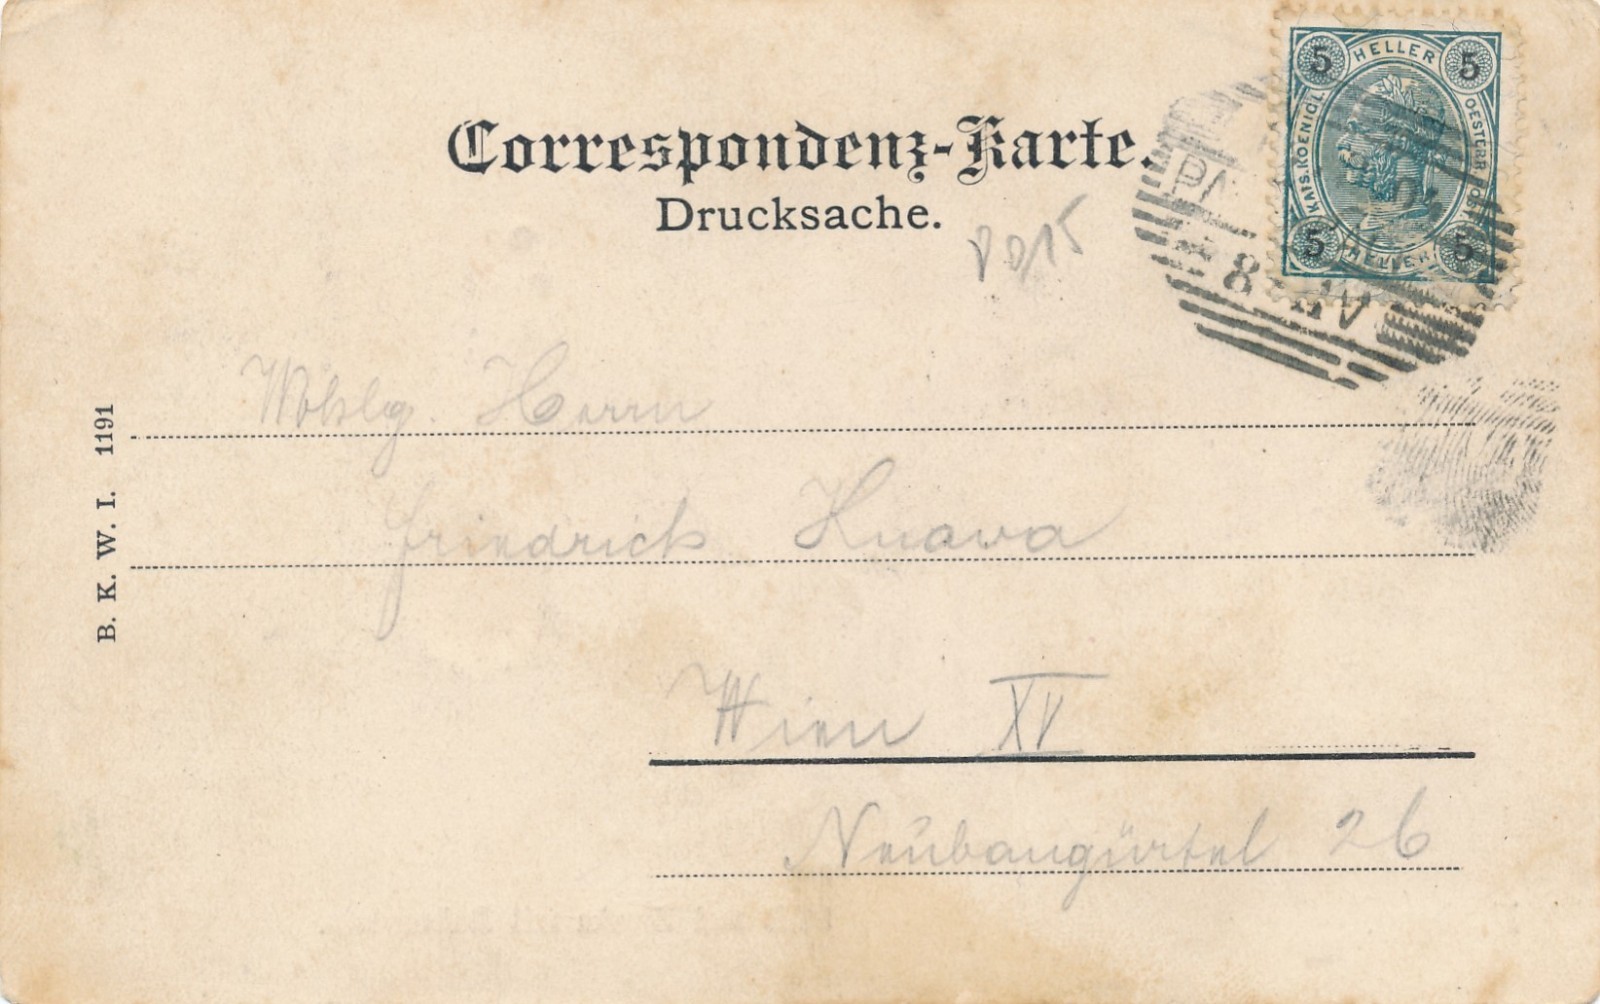 Correspondenz-Karte.
Drucksache.
5 HELLER 5
KAIS. KOENIGL. OESTERR. POST
5 HELLER 5
8
B. K. W. I. 1191
Wohlg. Herrn
Friedrich
Wien XV
Neubaugürtel 26